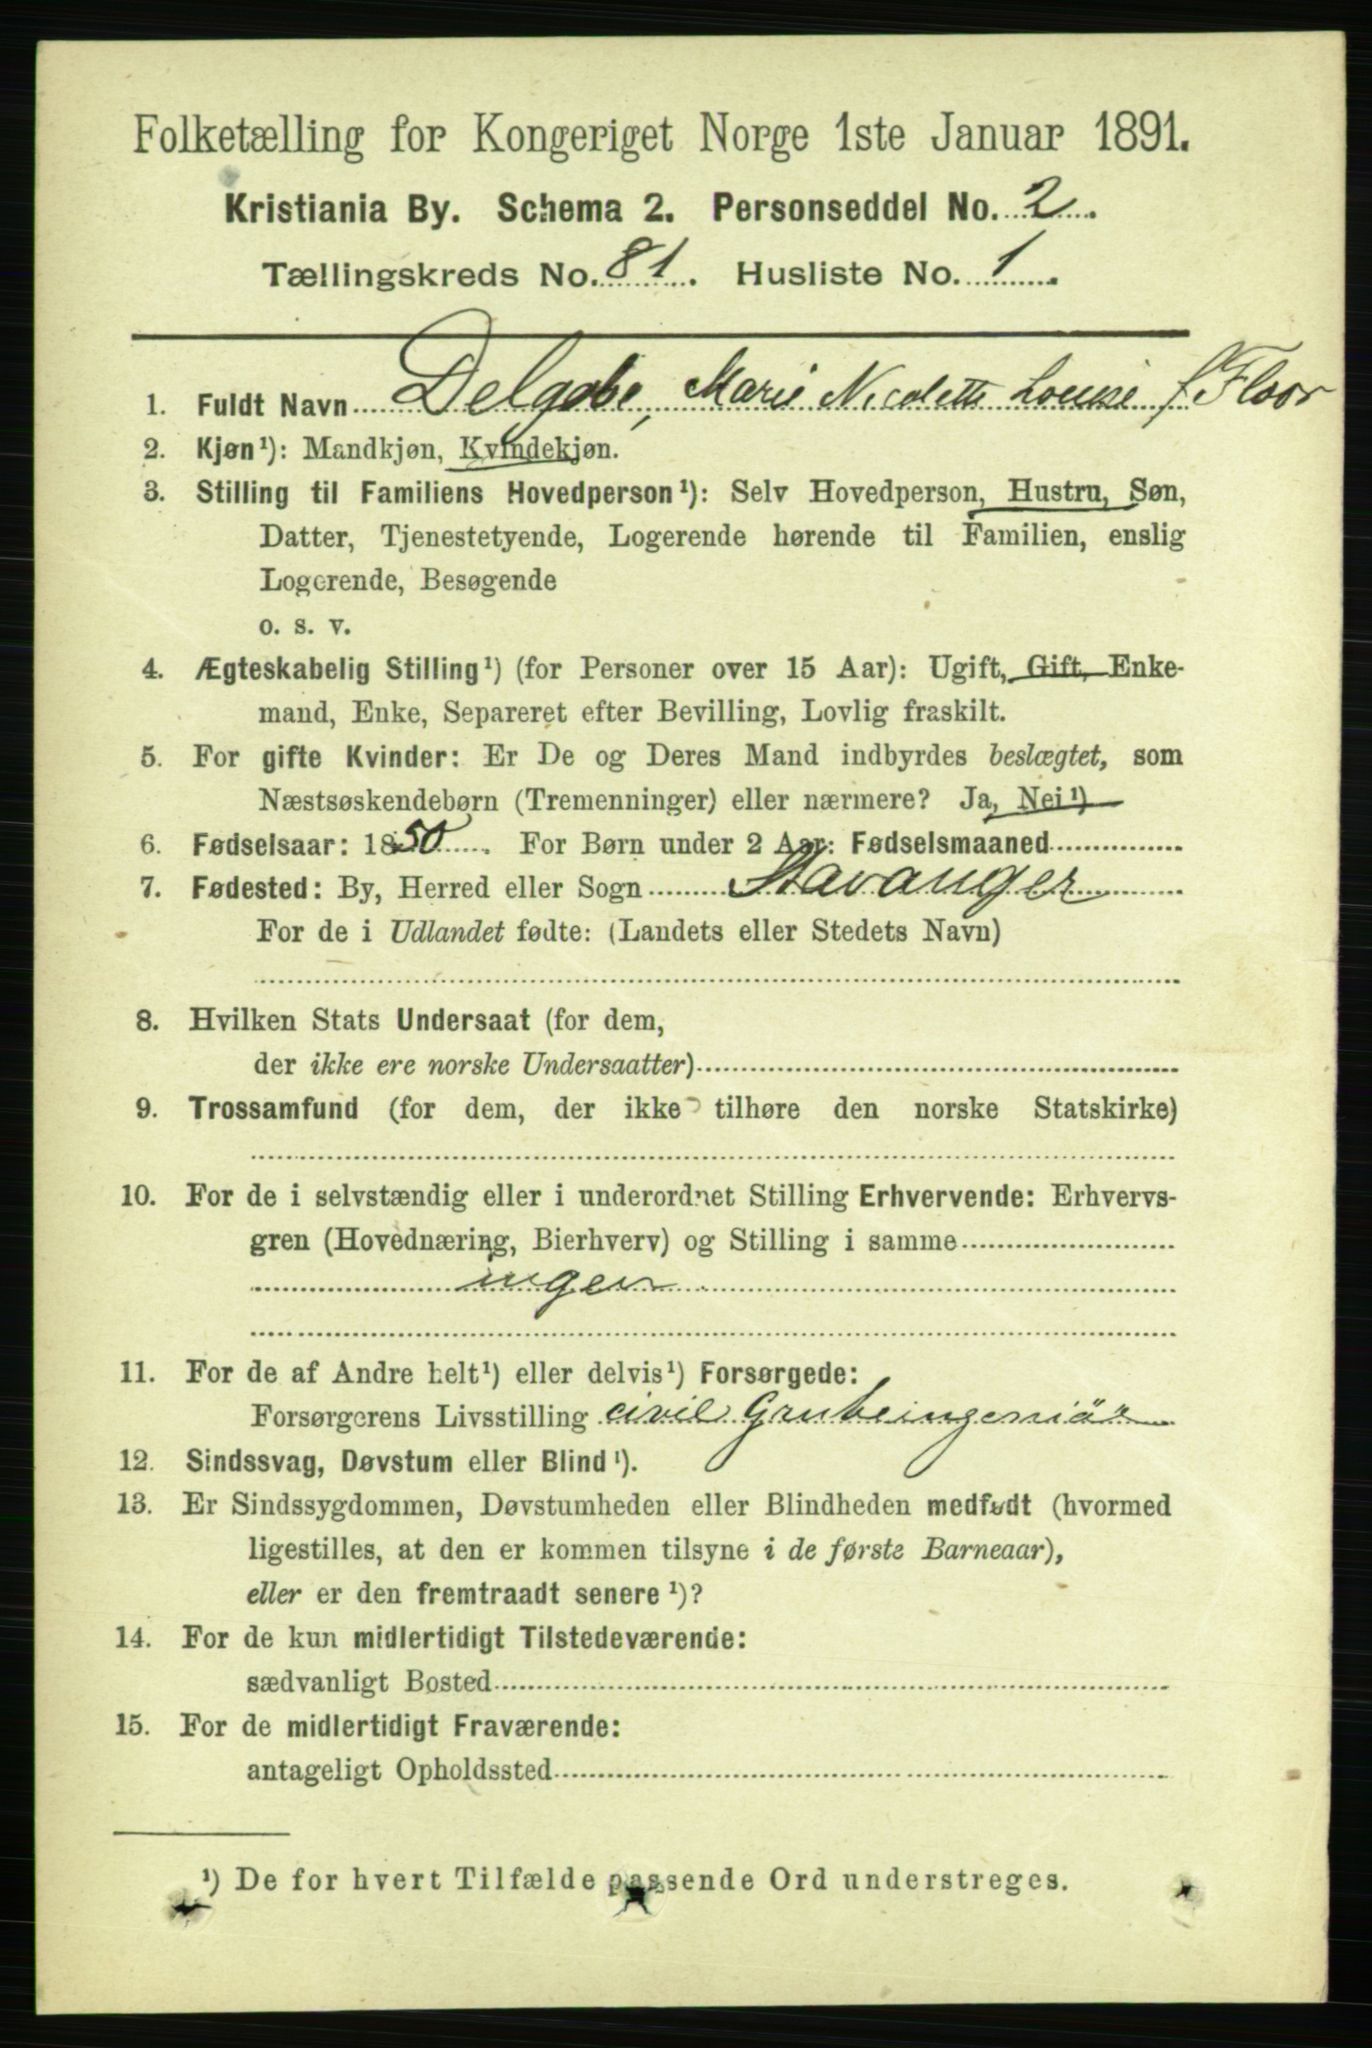 Folketælling for Kongeriget Norge 1ste Januar 1891.
Kristiania By. Schema 2. Personseddel No. 2.
Tællingskreds No. 81. Husliste No. 1.
1. Fuldt Navn Delgobe, Marie Nicolette Louise f Floor
2. Kjøn¹): Mandkjøn, Kvindekjøn.
3. Stilling til Familiens Hovedperson¹): Selv Hovedperson, Hustru, Søn,
Datter, Tjenestetyende, Logerende hørende til Familien, enslig
Logerende, Besøgende
o. s. v.
4. Ægteskabelig Stilling¹) (for Personer over 15 Aar): Ugift, Gift, Enke-
mand, Enke, Separeret efter Bevilling, Lovlig fraskilt.
5. For gifte Kvinder: Er De og Deres Mand indbyrdes beslægtet, som
Næstsøskendebørn (Tremenninger) eller nærmere? Ja, Nei¹)
6. Fødselsaar: 1850. For Børn under 2 Aar: Fødselsmaaned
7. Fødested: By, Herred eller Sogn Stavanger
For de i Udlandet fødte: (Landets eller Stedets Navn)
8. Hvilken Stats Undersaat (for dem,
der ikke ere norske Undersaatter)
9. Trossamfund (for dem, der ikke tilhøre den norske Statskirke)
10. For de i selvstændig eller i underordnet Stilling Erhvervende: Erhvervs-
gren (Hovednæring, Bierhverv) og Stilling i samme
ingen
11. For de af Andre helt¹) eller delvis¹) Forsørgede:
Forsørgerens Livsstilling civil Grubeingeniör
12. Sindssvag, Døvstum eller Blind¹).
13. Er Sindssygdommen, Døvstumheden eller Blindheden medfødt (hvormed
ligestilles, at den er kommen tilsyne i de første Barneaar),
eller er den fremtraadt senere¹)?
14. For de kun midlertidigt Tilstedeværende:
sædvanligt Bosted
15. For de midlertidigt Fraværende:
antageligt Opholdssted
¹) De for hvert Tilfælde passende Ord understreges.